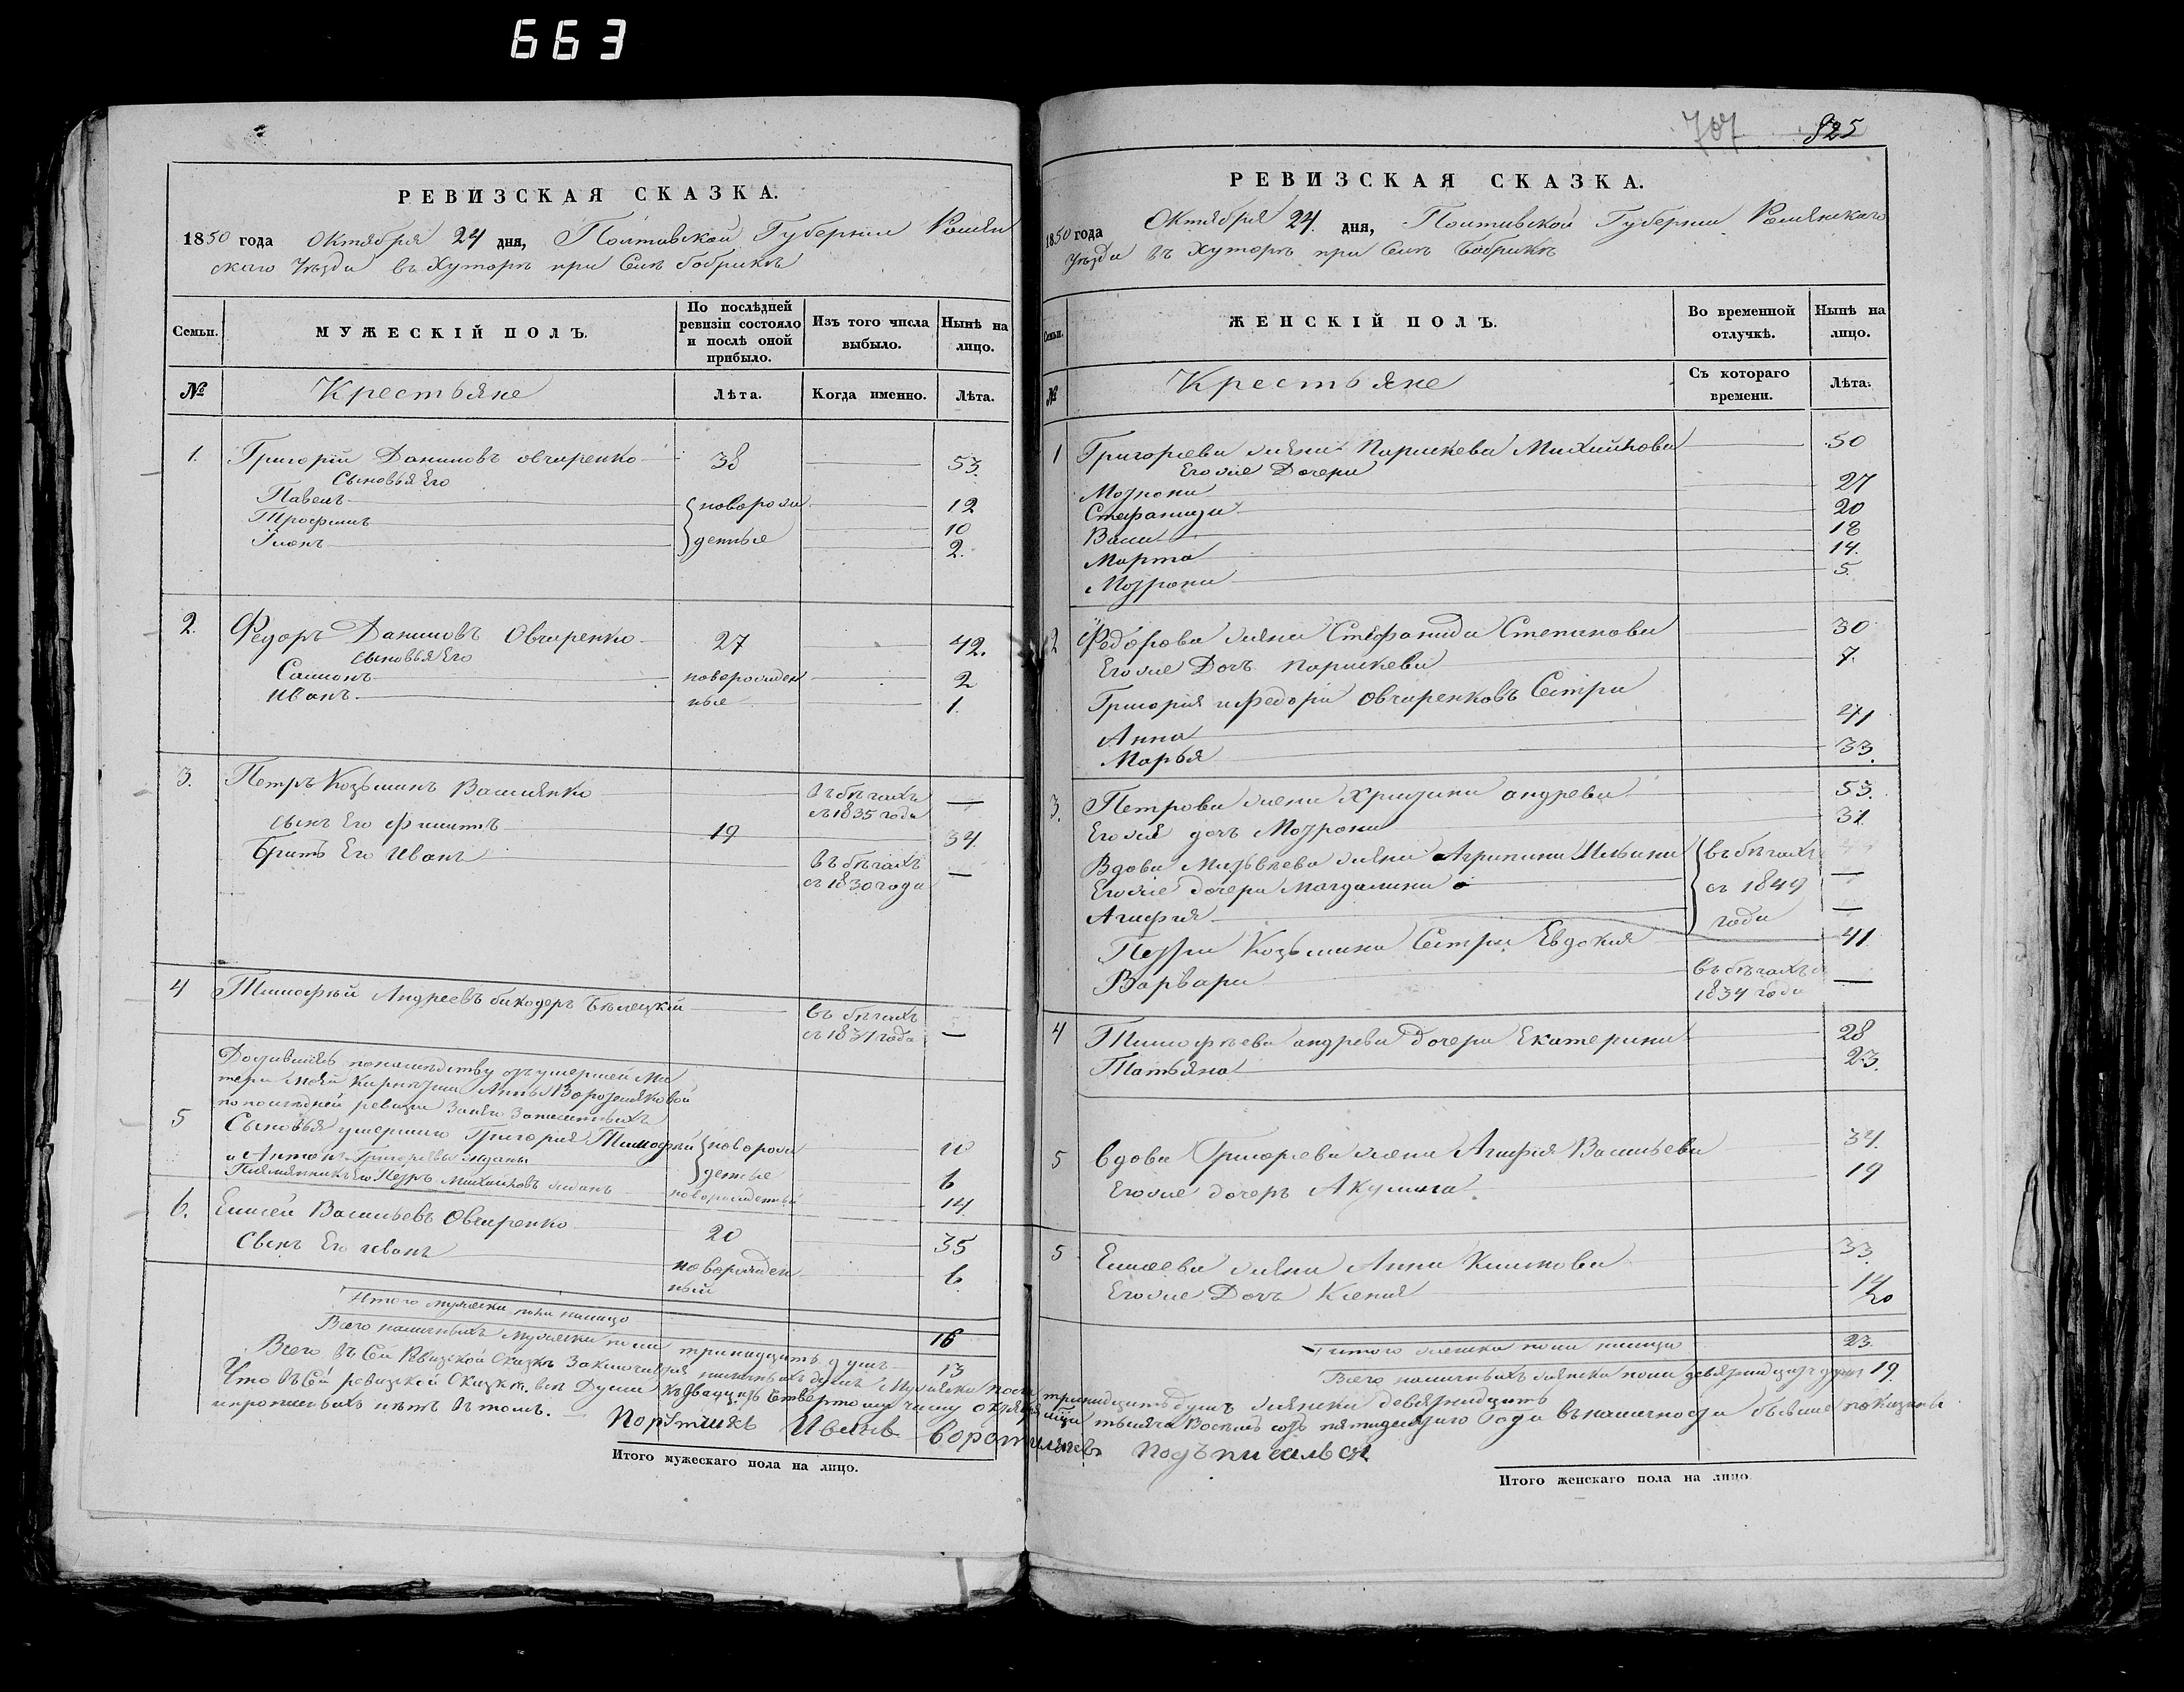 663
РЕВИЗСКАЯ СКАЗКА.
1850 года Октября 24 дня, Полтавской Губерніи Ромен
скаго Уѣзда въ Хуторѣ при Селѣ Бобрикѣ
Семьи.
МУЖЕСКІЙ ПОЛЪ.
По послѣдней ревизіи состояло и послѣ оной прибыло.
Изъ того числа выбыло.
Нынѣ на лицо.
№
Крестьяне
Лѣта.
Когда именно.
Лѣта.
1. Григорій Даниловъ Овчаренко 38 53.
Сыновья Его
Павелъ новорож 12
Трофимъ 10
денные 2.
2. Федоръ Даниловъ Овчаренко 27 42.
сыновья Его
Самсонъ новорожден 2
Иванъ ные 1.
3. Петръ Козьминъ въ бѣгахъ
съ 1835 года —
сынъ Его Филиппъ 19 34.
Братъ Его Иванъ въ бѣгахъ
съ 1830 года —
4 Тимофѣй Андреевъ Бѣлецкій въ бѣгахъ
—
5 Сыновья умершаго Григорія Тимофѣй новорож 10
и Антонъ Григорьевы Жданы денные 6
Племянникъ Его Петръ Михайловъ Жданъ новорожденный 14
6. Елисей Васильевъ Овчаренко 20 35
Сынъ Его Иванъ новорожден 6.
ный
Итого мужеска пола налицо 16
Всего наличныхъ мужеска пола тринадцать душъ 13
Всего въ Сей Ревизской Сказкѣ наличныхъ душъ мужеска пола тринадцать душъ женска девятнадцать
Что въ Сей ревизской Сказкѣ всѣ Души къ двадцать Четвертому числу Октября тысяча Восемь сотъ пятидесятаго Года въ наличности бывшіе показаны
и прописныхъ нѣтъ въ томъ.
Порутчикъ Иванъ подъписался
Итого мужескаго пола на лицо.
707 825
РЕВИЗСКАЯ СКАЗКА.
1850 года Октября 24 дня, Полтавской Губерніи Роменскаго
Уѣзда въ Хуторѣ при Селѣ Бобрикѣ
Семьи.
ЖЕНСКІЙ ПОЛЪ.
Во временной отлучкѣ.
Нынѣ на лицо.
№
Крестьяне
Съ котораго времени.
Лѣта.
1 Григорьева жена Параскева Михайлова 50
Его же Дочери
Мотрона 27
Стефанида 20
Васа 18
Марта 14.
Мотрона 5.
2 Федорова жена Стефанида Степанова 30
Его же Дочь Параскева 7.
Григорія и Федора Овчаренковъ Сестри
Анна 41
Марья 33.
3. Петрова жена Христина Андреева 53.
Его же дочь Мотрона 31
Вдова жена Агрипина Ильина въ бѣгахъ
Его же дочери Магдалина съ 1849 —
Агафія года —
Петра Козьмина Сестри Евдокия 41
Варвара въ бѣгахъ съ
1834 года —
4 Тимофѣева Андреева дочери Екатерина 28
Татьяна 23.
5 Вдова Григорьева жена Агафія Васильева 34.
Его же дочерь Акулина 19
5 Елисеева жена Анна Климова 33.
Его же Дочь Ксенія 14/20
Итого женска пола налицо 23.
Всего наличныхъ женска пола девятнадцать душъ 19.
Итого женскаго пола на лицо.